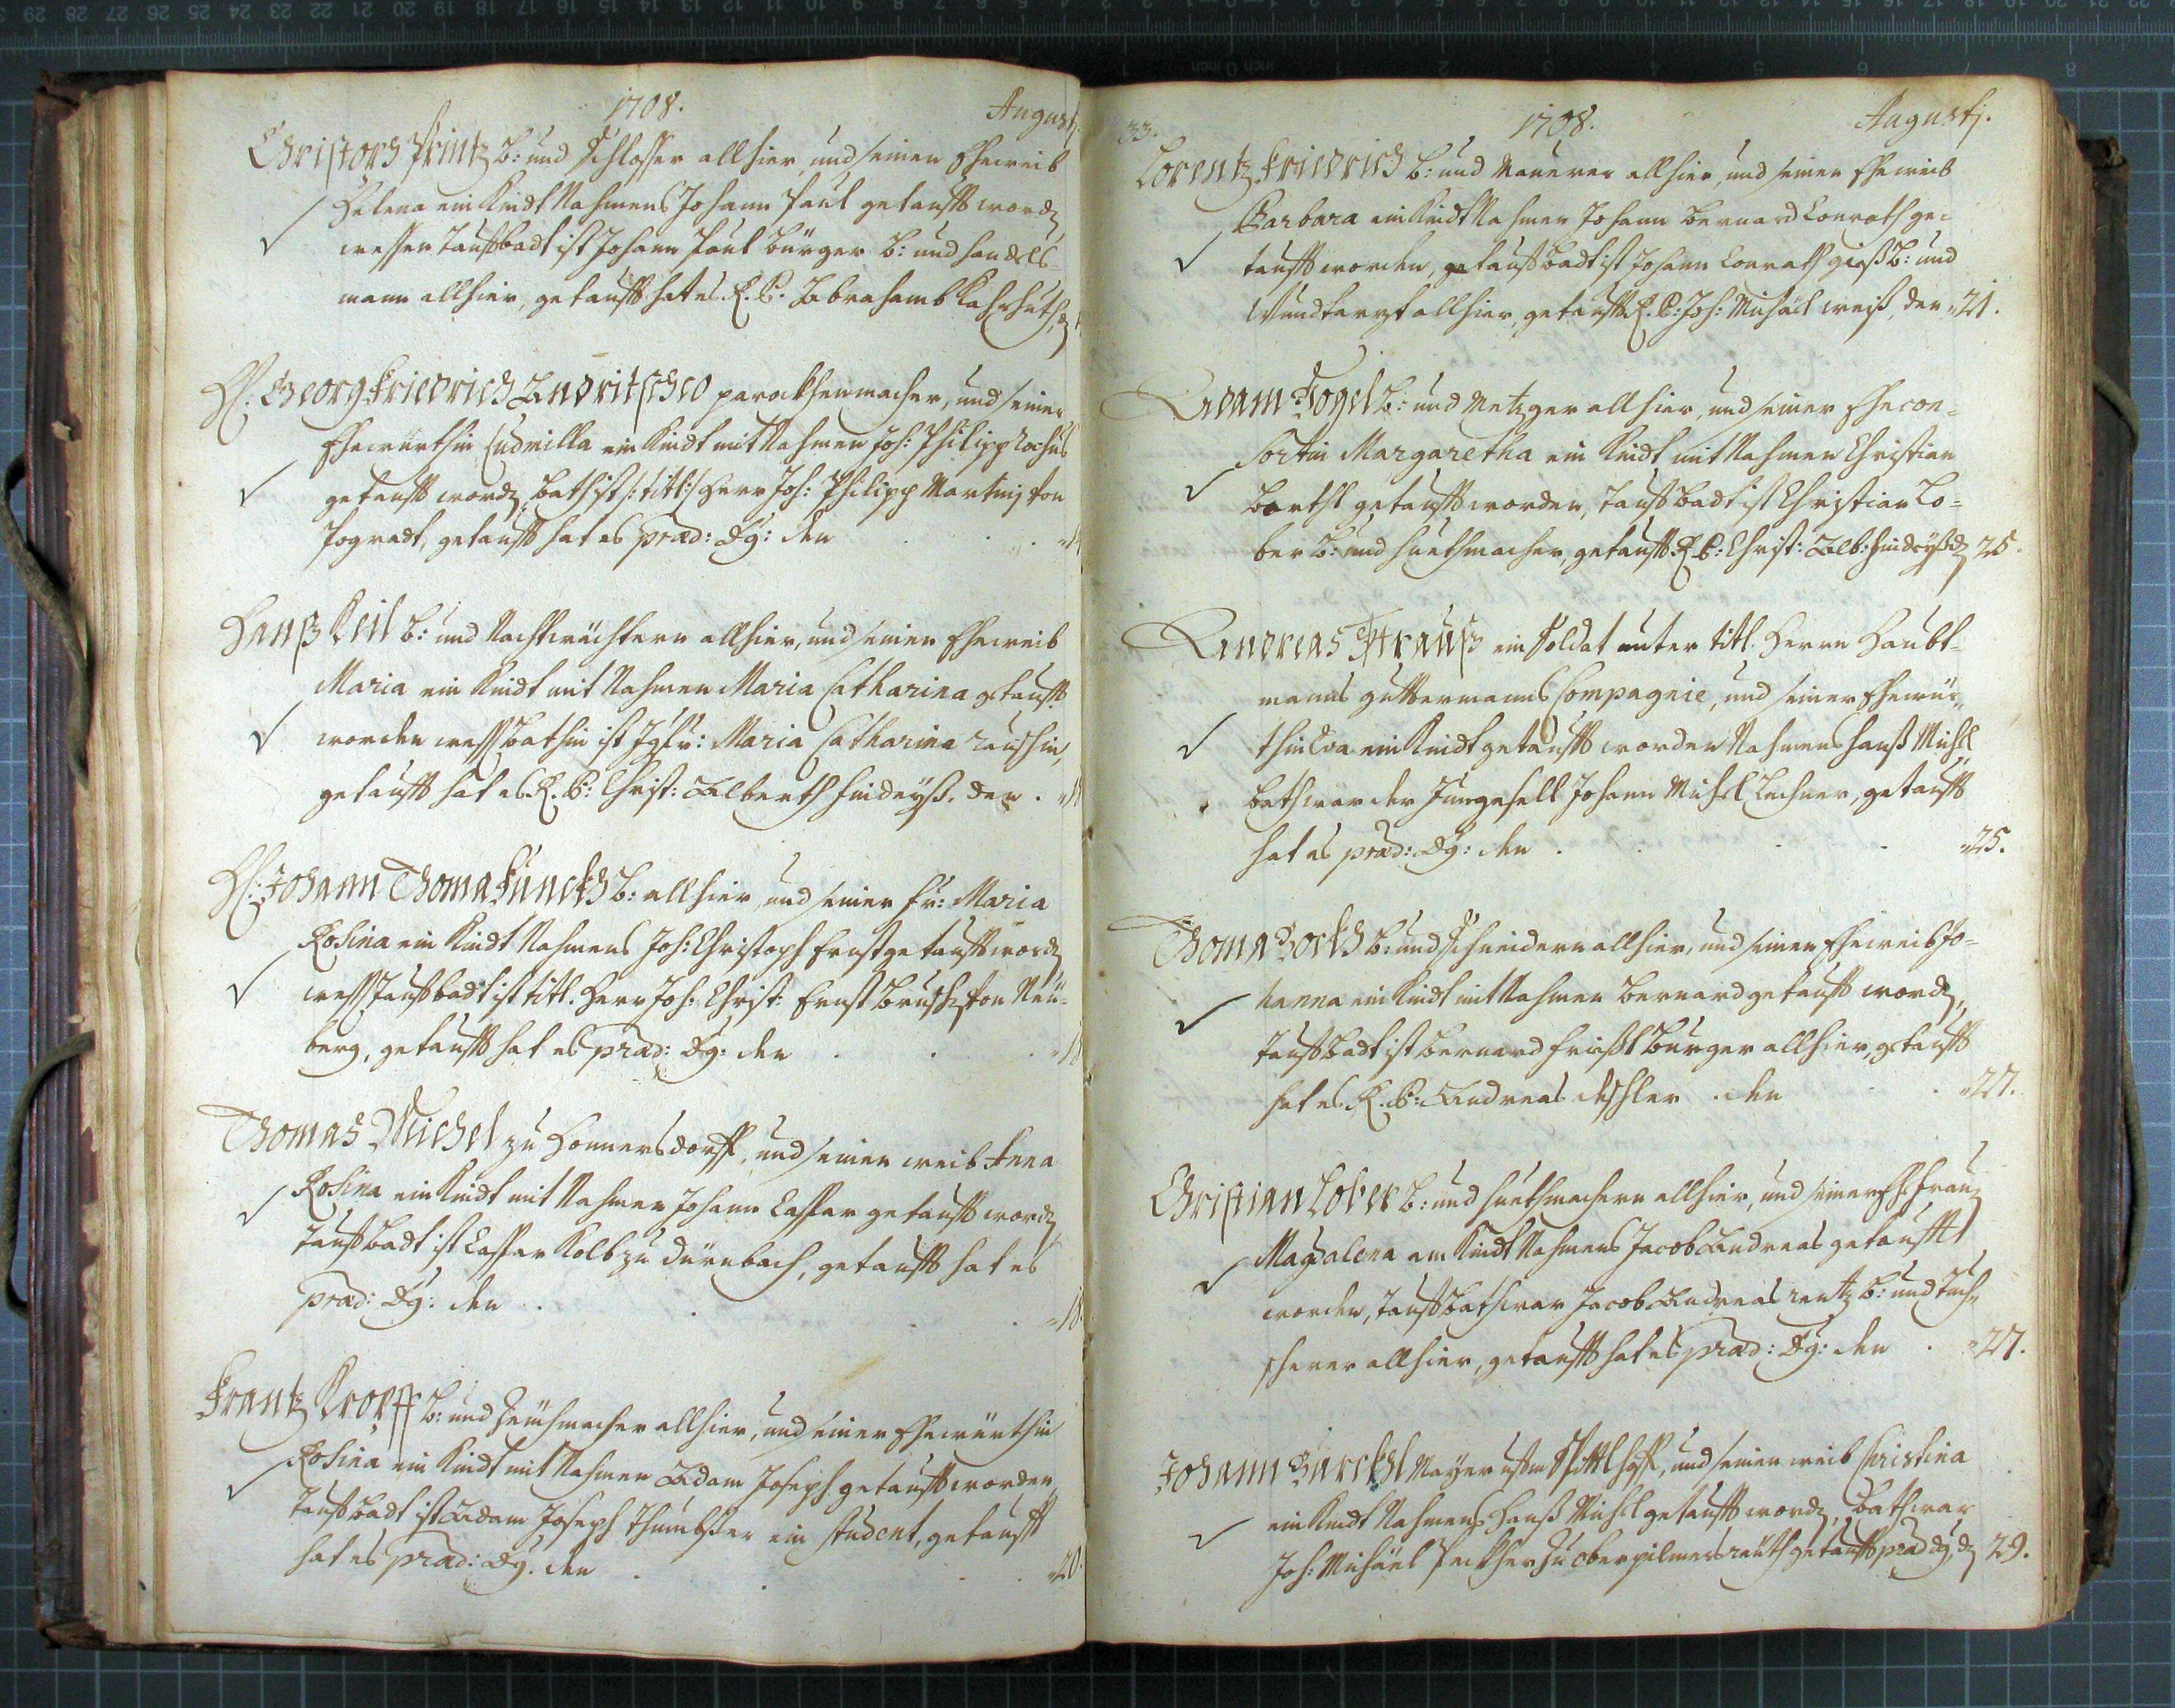 1708. Augusti.
Christoph Printz B: und Schlosser allhier, und seinen Eheweib
Helena ein Kindt Nahmens Johann Paul getaufft word
wessen Tauffbadt ist Johann Paul Bürger B: und handels-
mann allhier, getaufft hat es R. P. Abrahamb
H: Georg Friedrich parockhenmacher, und seiner
Ehewürthin Ludmilla ein Kindt mit Nahmen Joh: Philipp
getaufft word, bath ist /:titl:/ Herr Joh: Philipp Martinj von
Pograдt, getaufft hat es præd: Dg: den
Hanß Keil B: und Nachtwächtern allhier, und seinen Eheweib
Maria ein Kindt mit Nahmen Maria Catharina getaufft
worden, bathin ist Jgfr: Maria Catharina
getaufft hat es R. P: Christ: Alberth den
H: Johann Thoma Funckh B: allhier, und seiner Fr: Maria
Rosina ein Kindt Nahmens Joh: Christoph Ernst getaufft word
Tauffbadt ist titl. Herr Joh: Christ: Ernst von Neu-
berg, getaufft hat es præd: Dg: den 18
Thomas Michel zu Honnersdorff, und seinen weib Anna
Rosina ein Kindt mit Nahmen Johann Caspar getaufft word
Tauffbadt ist Caspar Kolb zu Dürnbach, getaufft hat es
præd: Dg: den 18.
Frantz Kropff B: und Zeuchmacher allhier, und seiner Ehewürthin
Rosina ein Kindt mit Nahmen Adam Joseph getaufft worden,
Tauffbadt ist Adam Joseph ein student, getaufft
hat es præd: Dg: den 20.
33. 1708. Augustj.
Lorentz Friedrich B: und Maurer allhier, und seinen Eheweib
Barbara ein Kindt Nahmen Johann Bernard Conrath ge-
taufft worden, Tauffbadt ist Johann Conrath B: und
Wundtarzt allhier, getaufft R. P: Joh: Michael weiß, den 21.
Adam Vogel B: und Metzger allhier, und seiner Ehecon-
sortin Margaretha ein Kindt mit Nahmen Christian
Barthl getaufft worden, Tauffbadt ist Christian Lo-
ber B: und Huethmacher, getaufft R P: Christ: Alb: 25.
Andreas Strauß ein Soldat unter titl. Herrn Haubt-
manns Guttermanns Compagnie, und seiner Ehewür-
thin Eva ein Kindt getaufft worden Nahmens Hanß Michl
bath war der Jungesell Johann Michl Lechner, getaufft
hat es præd: Dg: den 25.
Thoma Bockh B: und Schneidern allhier, und seinen Eheweib Jo-
hanna ein Kindt mit Nahmen Bernard getaufft word,
Tauffbadt ist Bernard Burger allhier, getaufft
hat es R. P: Andreas den 27.
Christian Lober B: und Huethmachern allhier, und seiner Eh: Frau
Magdalena ein Kindt Nahmens Jacob Andreas getaufft
worden, Tauffbath war Jacob Andreas rentz B: und Tuch-
scherer allhier, getaufft hat es præd: Dg: den 27.
Johann Mayer Spittlhoff, und seinen weib Christina
ein Kindt Nahmens Hanß Michl getaufft word, bath war
Joh: Michäel zu oberpilmersreuth getaufft præd dg. d 29.